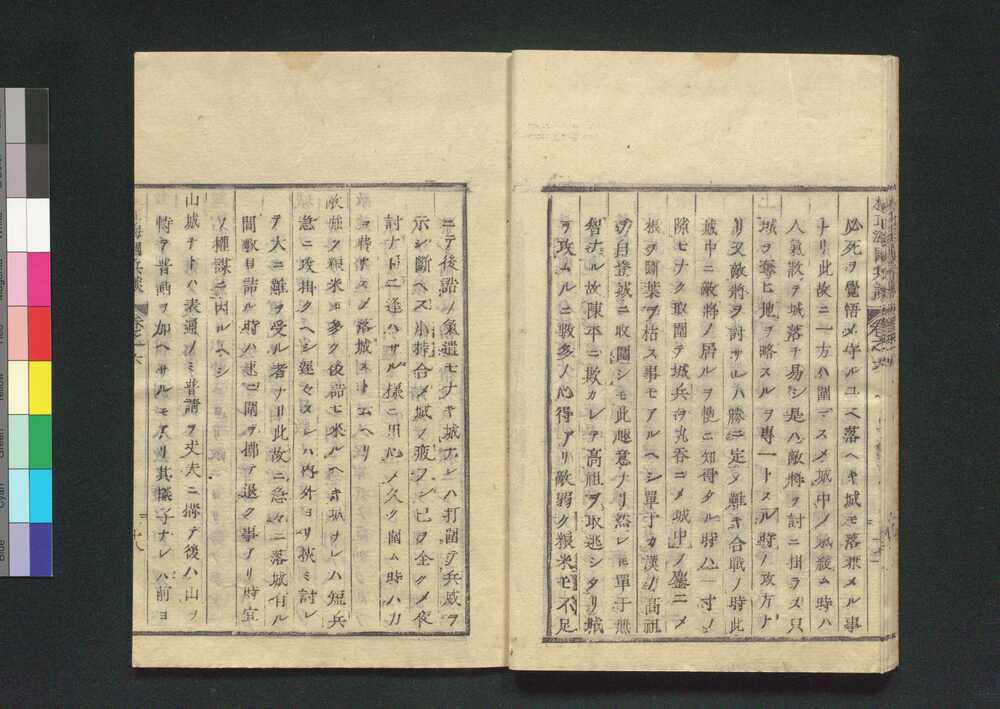 必死ヲ覺悟メ守ルユヘ落ヘキ城モ落兼メル事
トリ此故ニ一方ハ圍マスメ城中ノ氣緩ム時ハ
人氣散ヲ城落チ易シ是ハ敵將ヲ討ニ掛ラス只
城ヲ奪ヒ地ヲ略スルヲ專一トスル時ノ攻方ナ
リ又敵將ヲ討サレハ勝ニ定メ難キ合戰ノ時此
城中ニ敵將ノ居ルヲ使ニ知得タル時ハ一寸ノ
隙モナク取圍テ城兵ヲ丸呑ニメ城中ノ鏖ニメ
根ヲ斷葉ヲ枯ス事モアルヘシ單于カ漢ノ高祖
ヲ白登城ニ取圍シモ此趣意ナリ然レモ單于無
智ナル故陳平ニ欺カレテ高祖ヲ取逃シタリ城
ヲ攻ムルニ數多ノ心得アリ敵弱ク粮米モ不足
ニテ後詰ノ氣遣モナキ城ナレハ打圍テ兵威ヲ
示シ斷ヘス小持合メ城ノ疲ヲ已ヲ全クメ夜
討ナトニ逢ハサル樣ニ用心メ久ク圍ム時ハ力
ヲ費サスメ落城スト云ヘリ
敵強ク粮米モ多ク後詰モ來ルヘキ城ナレハ短兵
急ニ攻掛クヘシ遲々スレハ内外ヨリ挾ミ討レ
テ大ニ難ヲ受ル者ナリ此故ニ急々ニ落城有ル
間數日詰ル時ハ速ニ圍ヲ拂テ退ク事アリ時宜
ノ權謀ニ因ルヘシ
山城ナトハ表通ノミ普請ヲ丈夫ニ拵テ後ハ山ヲ
恃テ普請ヲ加ヘサルモアリ其樣子ナレハ前ヨ
海國兵談
卷之六
十八